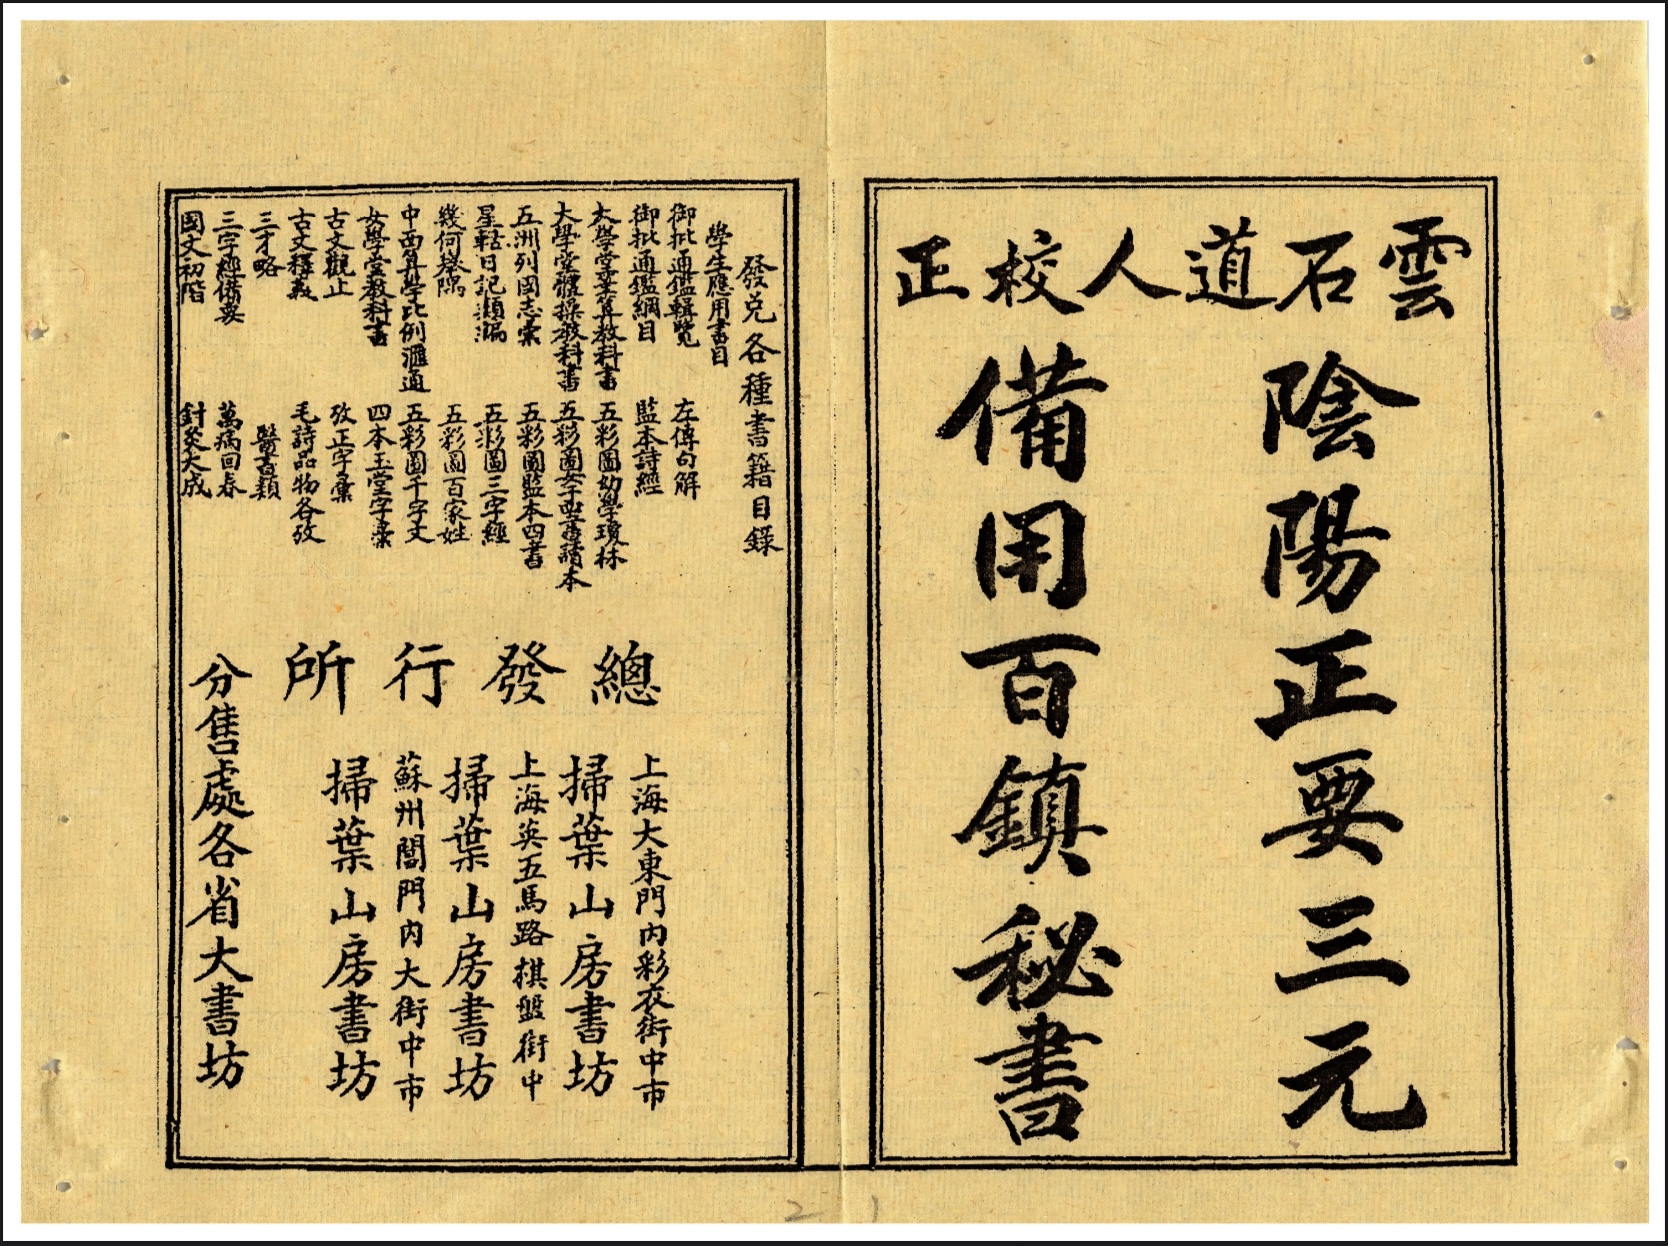 雲石道人校正
陰陽正要三元
備用百鎮秘書
發兌各種書籍目錄
學生應用書目
御批通鑑輯覽
左傳句解
御批通鑑綱目
監本詩經
大學堂筆算教科書
五彩圖幼學瓊林
大學堂體操教科書
五彩圖女字四書讀本
五洲列國志彙
五彩圖監本四書
星軺日記類編
五彩圖三字經
幾何舉隅
五彩圖百家姓
中西算學比例滙通
五彩圖千字文
女學堂教科書
四本玉堂字彙
古文觀止
攷正字彙
古文釋義
毛詩品物各攷
三才略
醫書類
三字經備要
萬病回春
國文初階
針灸大成
總發行所
上海大東門內彩衣街中市
掃葉山房書坊
上海英五馬路棋盤街中
掃葉山房書坊
蘇州閶門內大街中市
掃葉山房書坊
分售處各省大書坊
2
1